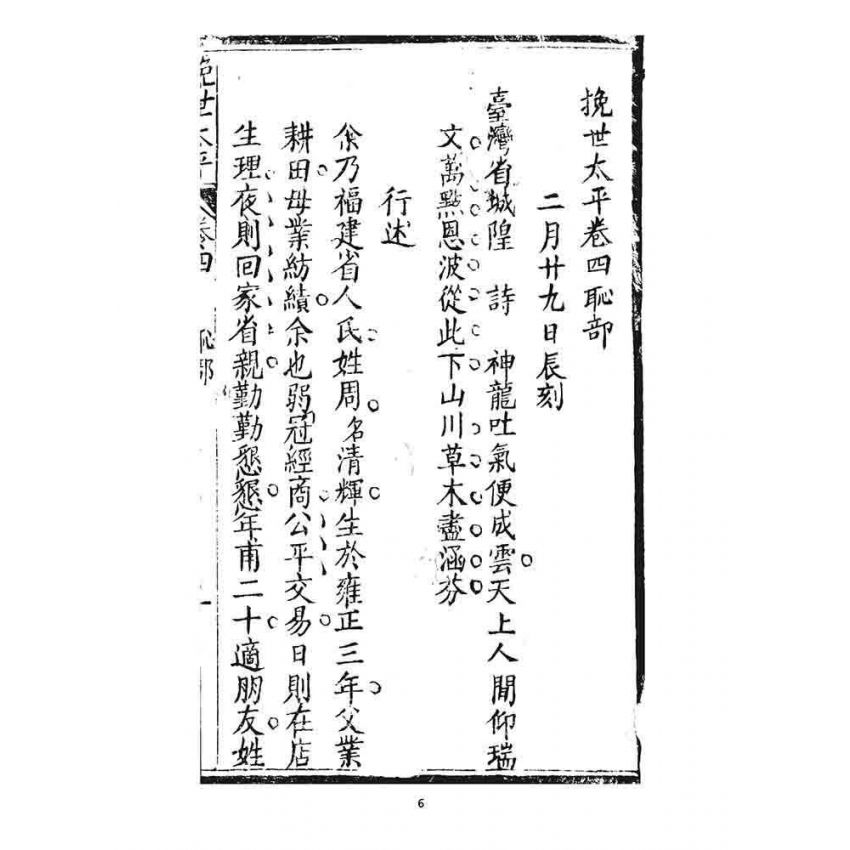 挽世太平卷四恥部
二月廿九日辰刻
臺灣省城隍 詩 神龍吐氣便成雲天上人間仰瑞
文萬點恩波從此下山川草木盡涵芬
行述
余乃福建省人氏姓周名清輝生於雍正三年父業
耕田母業紡績余也弱冠經商公平交易日則在店
生理夜則回家省親勤勤懇懇年甫二十適朋友姓
挽世太平 卷四 恥部 一
6